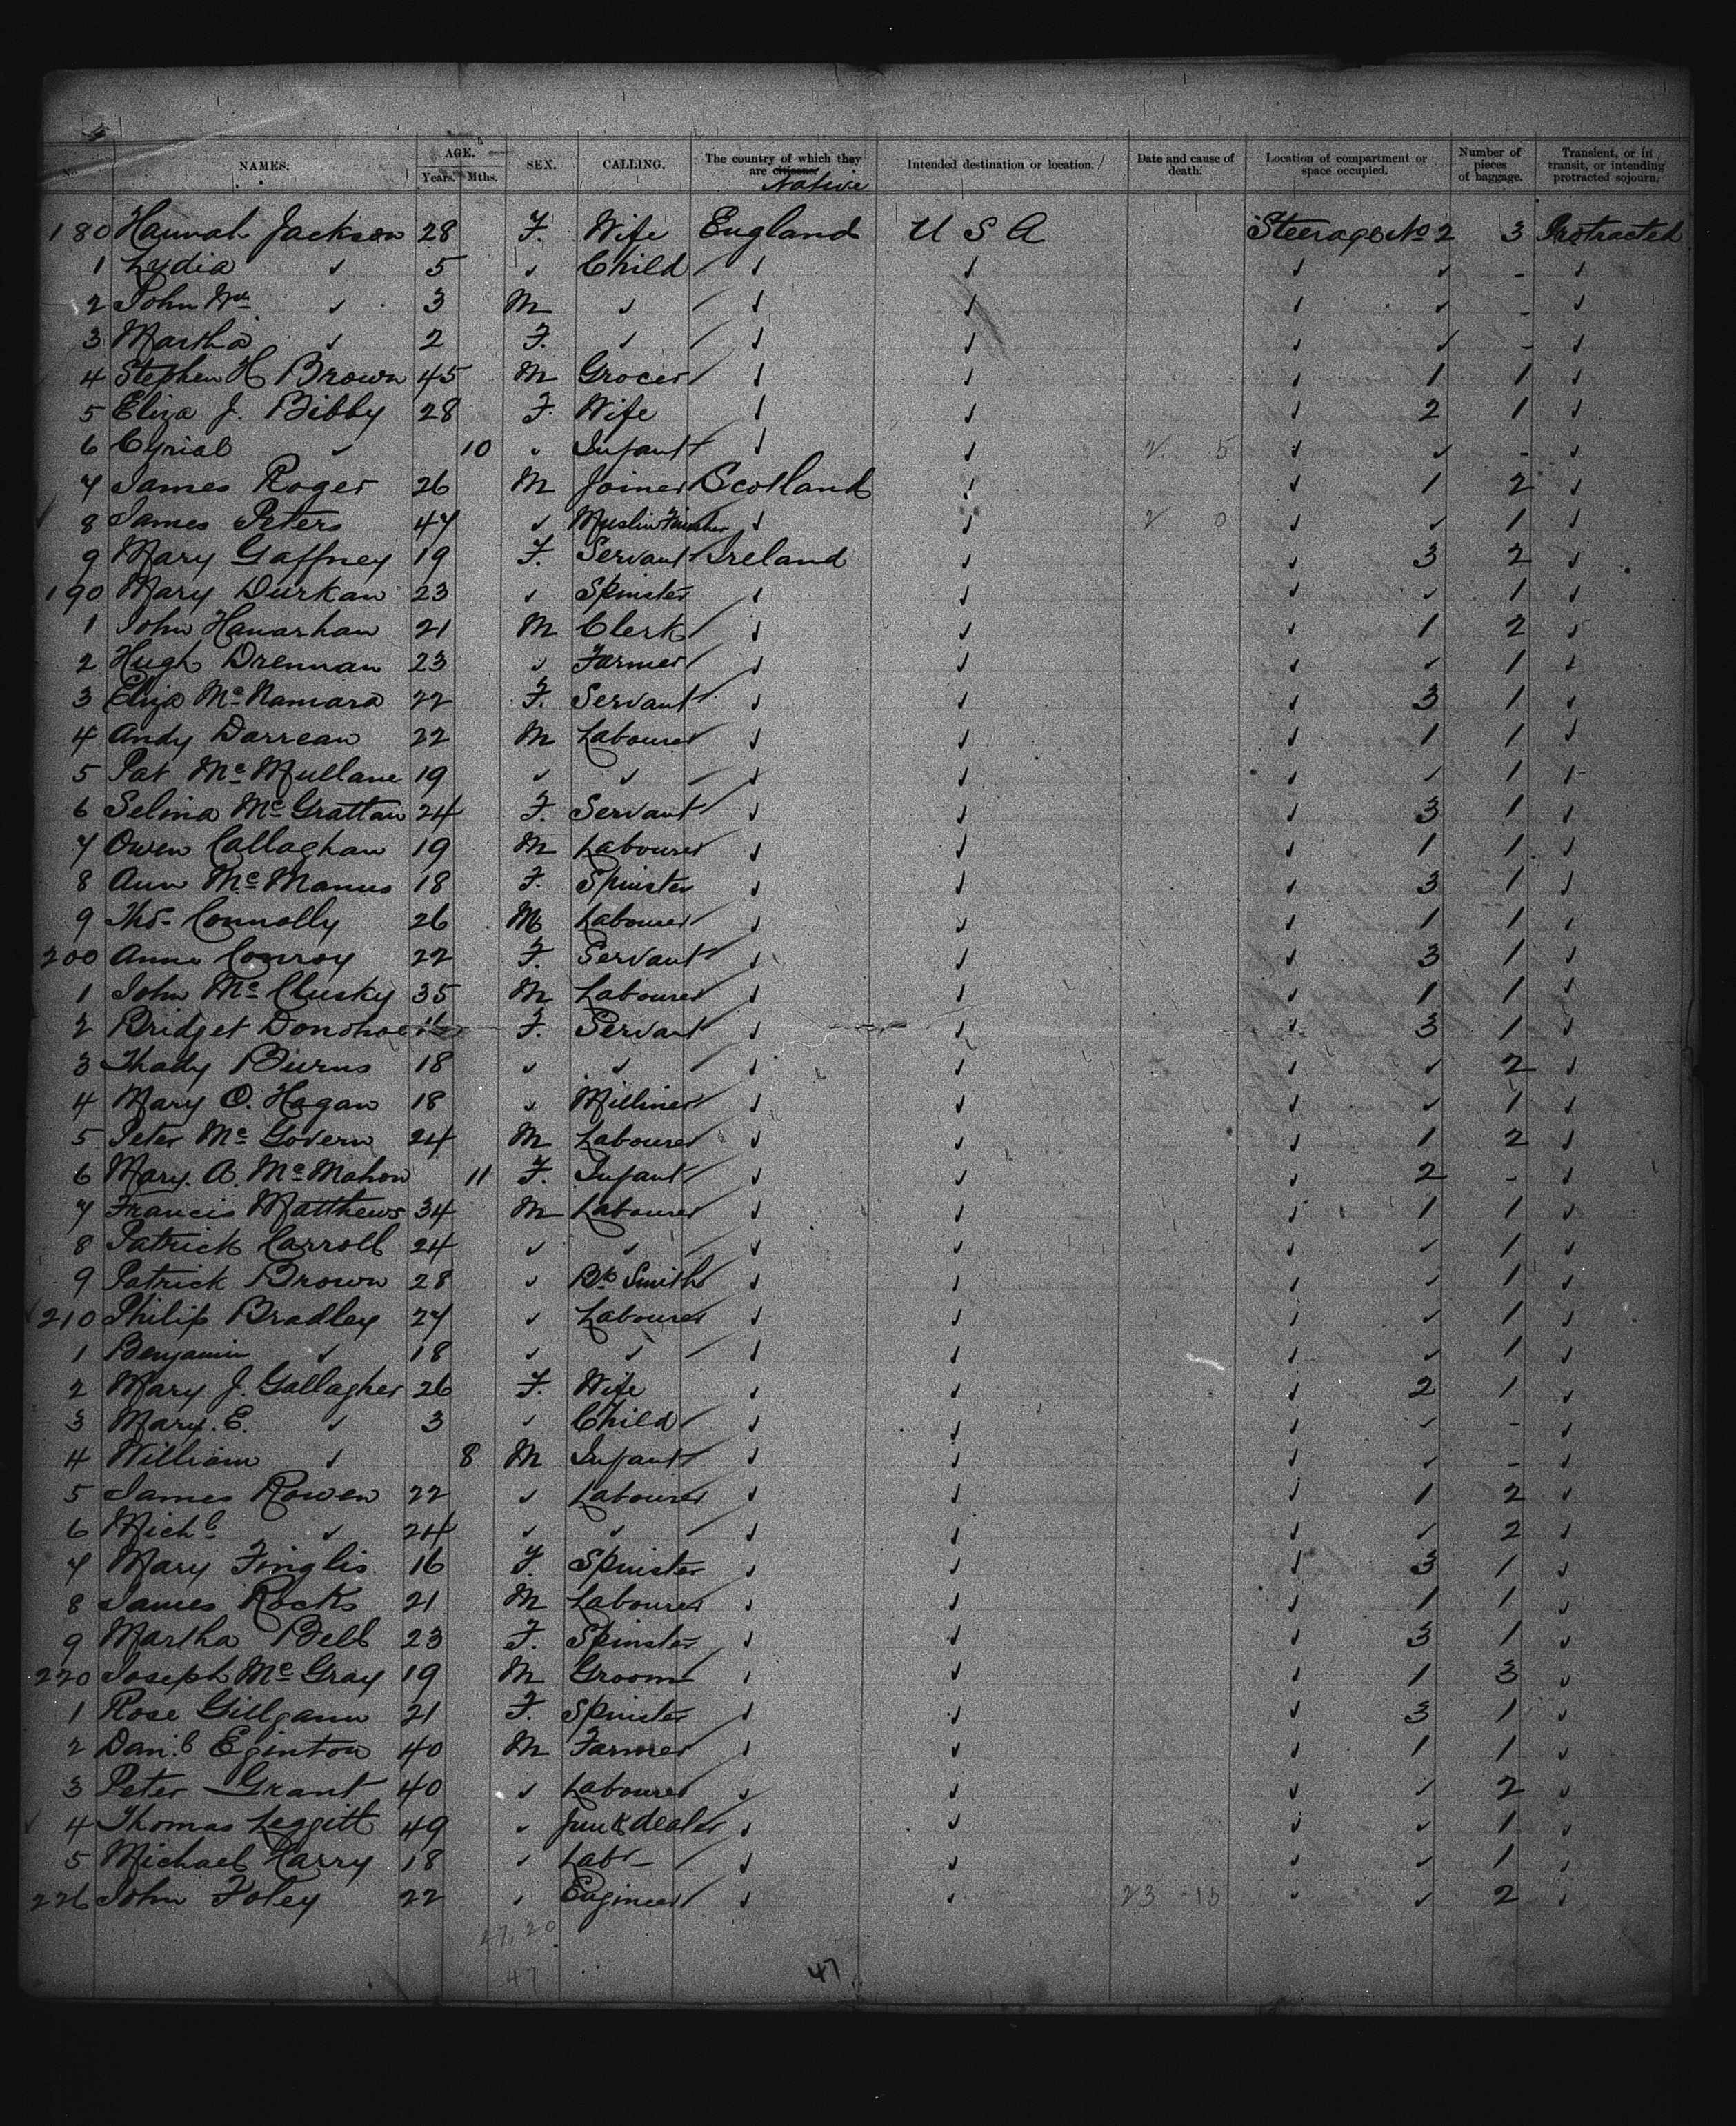 No. NAMES. AGE. Years. Mths. SEX. CALLING. The country of which they are citizens Native Intended destination or location. Date and cause of death. Location of compartment or space occupied. Number of pieces of baggage. Transient, or in transit, or intending protracted sojourn.
180 Hannah Jackson 28 F. Wife England U S A Steerage No 2 3 Protracted
1 Lydia ✓ 5 ✓ Child ✓ ✓ ✓ ✓ - ✓
2 John Wm ✓ 3 M ✓ ✓ ✓ ✓ ✓ - ✓
3 Martha ✓ 2 F. ✓ ✓ ✓ ✓ ✓ - ✓
4 Stephen H Brown 45 M Grocer ✓ ✓ ✓ 1 1 ✓
5 Eliza J. Bibby 28 F. Wife ✓ ✓ ✓ 2 1 ✓
6 Cyrial ✓ 10 ✓ Infant ✓ ✓ 2 5 ✓ ✓ - ✓
7 James Roger 26 M Joiner Scotland ✓ ✓ 1 2 ✓
8 James Peters 47 ✓ Muslin Finisher ✓ ✓ 2 0 ✓ ✓ 1 ✓
9 Mary Gaffney 19 F. Servant Ireland ✓ ✓ 3 2 ✓
190 Mary Durkan 23 ✓ Spinster ✓ ✓ ✓ ✓ 1 ✓
1 John Hanarhan 21 M Clerk ✓ ✓ ✓ 1 2 ✓
2 Hugh Drennan 23 ✓ Farmer ✓ ✓ ✓ ✓ 1 ✓
3 Eliza Mc Namara 22 F. Servant ✓ ✓ ✓ 3 1 ✓
4 Andy Darrean 22 M Labourer ✓ ✓ ✓ 1 1 ✓
5 Pat Mc Mullane 19 ✓ ✓ ✓ ✓ ✓ ✓ 1 ✓
6 Selina Mc Grattan 24 F. Servant ✓ ✓ ✓ 3 1 ✓
7 Owen Callaghan 19 M Labourer ✓ ✓ ✓ 1 1 ✓
8 Ann Mc Manus 18 F. Spinster ✓ ✓ ✓ 3 1 ✓
9 Thos Connolly 26 M Labourer ✓ ✓ ✓ 1 1 ✓
200 Anne Conroy 22 F. Servant ✓ ✓ ✓ 3 1 ✓
1 John Mc Clusky 35 M Labourer ✓ ✓ ✓ 1 1 ✓
2 Bridget Donohoe F. Servant ✓ ✓ ✓ 3 1 ✓
3 Thady Burns 18 ✓ ✓ ✓ ✓ ✓ ✓ 2 ✓
4 Mary O. Hagan 18 ✓ Milliner ✓ ✓ ✓ ✓ 1 ✓
5 Peter Mc Govern 24 M Labourer ✓ ✓ ✓ 1 2 ✓
6 Mary. A. Mc Mahon 11 F. Infant ✓ ✓ ✓ 2 - ✓
7 Francis Matthews 34 M Labourer ✓ ✓ ✓ 1 1 ✓
8 Patrick Carroll 24 ✓ ✓ ✓ ✓ ✓ ✓ 1 ✓
9 Patrick Brown 28 ✓ Bk Smith ✓ ✓ ✓ ✓ 1 ✓
210 Philip Bradley 27 ✓ Labourer ✓ ✓ ✓ ✓ 1 ✓
1 Benjamin ✓ 18 ✓ ✓ ✓ ✓ ✓ ✓ 1 ✓
2 Mary J. Gallagher 26 F. Wife ✓ ✓ ✓ 2 1 ✓
3 Mary. E. ✓ 3 ✓ Child ✓ ✓ ✓ ✓ - ✓
4 William ✓ 8 M Infant ✓ ✓ ✓ ✓ - ✓
5 James Rowen 22 ✓ Labourer ✓ ✓ ✓ 1 2 ✓
6 Michl ✓ 24 ✓ ✓ ✓ ✓ ✓ ✓ 2 ✓
7 Mary Finglis 16 F. Spinster ✓ ✓ ✓ 3 1 ✓
8 James Rocks 21 M Labourer ✓ ✓ ✓ 1 1 ✓
9 Martha Bell 23 F. Spinster ✓ ✓ ✓ 3 1 ✓
220 Joseph Mc Gray 19 M Groom ✓ ✓ ✓ 1 3 ✓
1 Rose Gillgann 21 F. Spinster ✓ ✓ ✓ 3 1 ✓
2 Danl Eginton 40 M Farmer ✓ ✓ ✓ 1 1 ✓
3 Peter Grant 40 ✓ Labourer ✓ ✓ ✓ ✓ 2 ✓
4 Thomas Leggitt 49 ✓ Junk dealer ✓ ✓ ✓ ✓ 1 ✓
5 Michael Carry 18 ✓ Labr ✓ ✓ ✓ ✓ 1 ✓
226 John Foley 22 ✓ Engineer ✓ ✓ 23 15 ✓ ✓ 2 ✓
27, 20
47 47